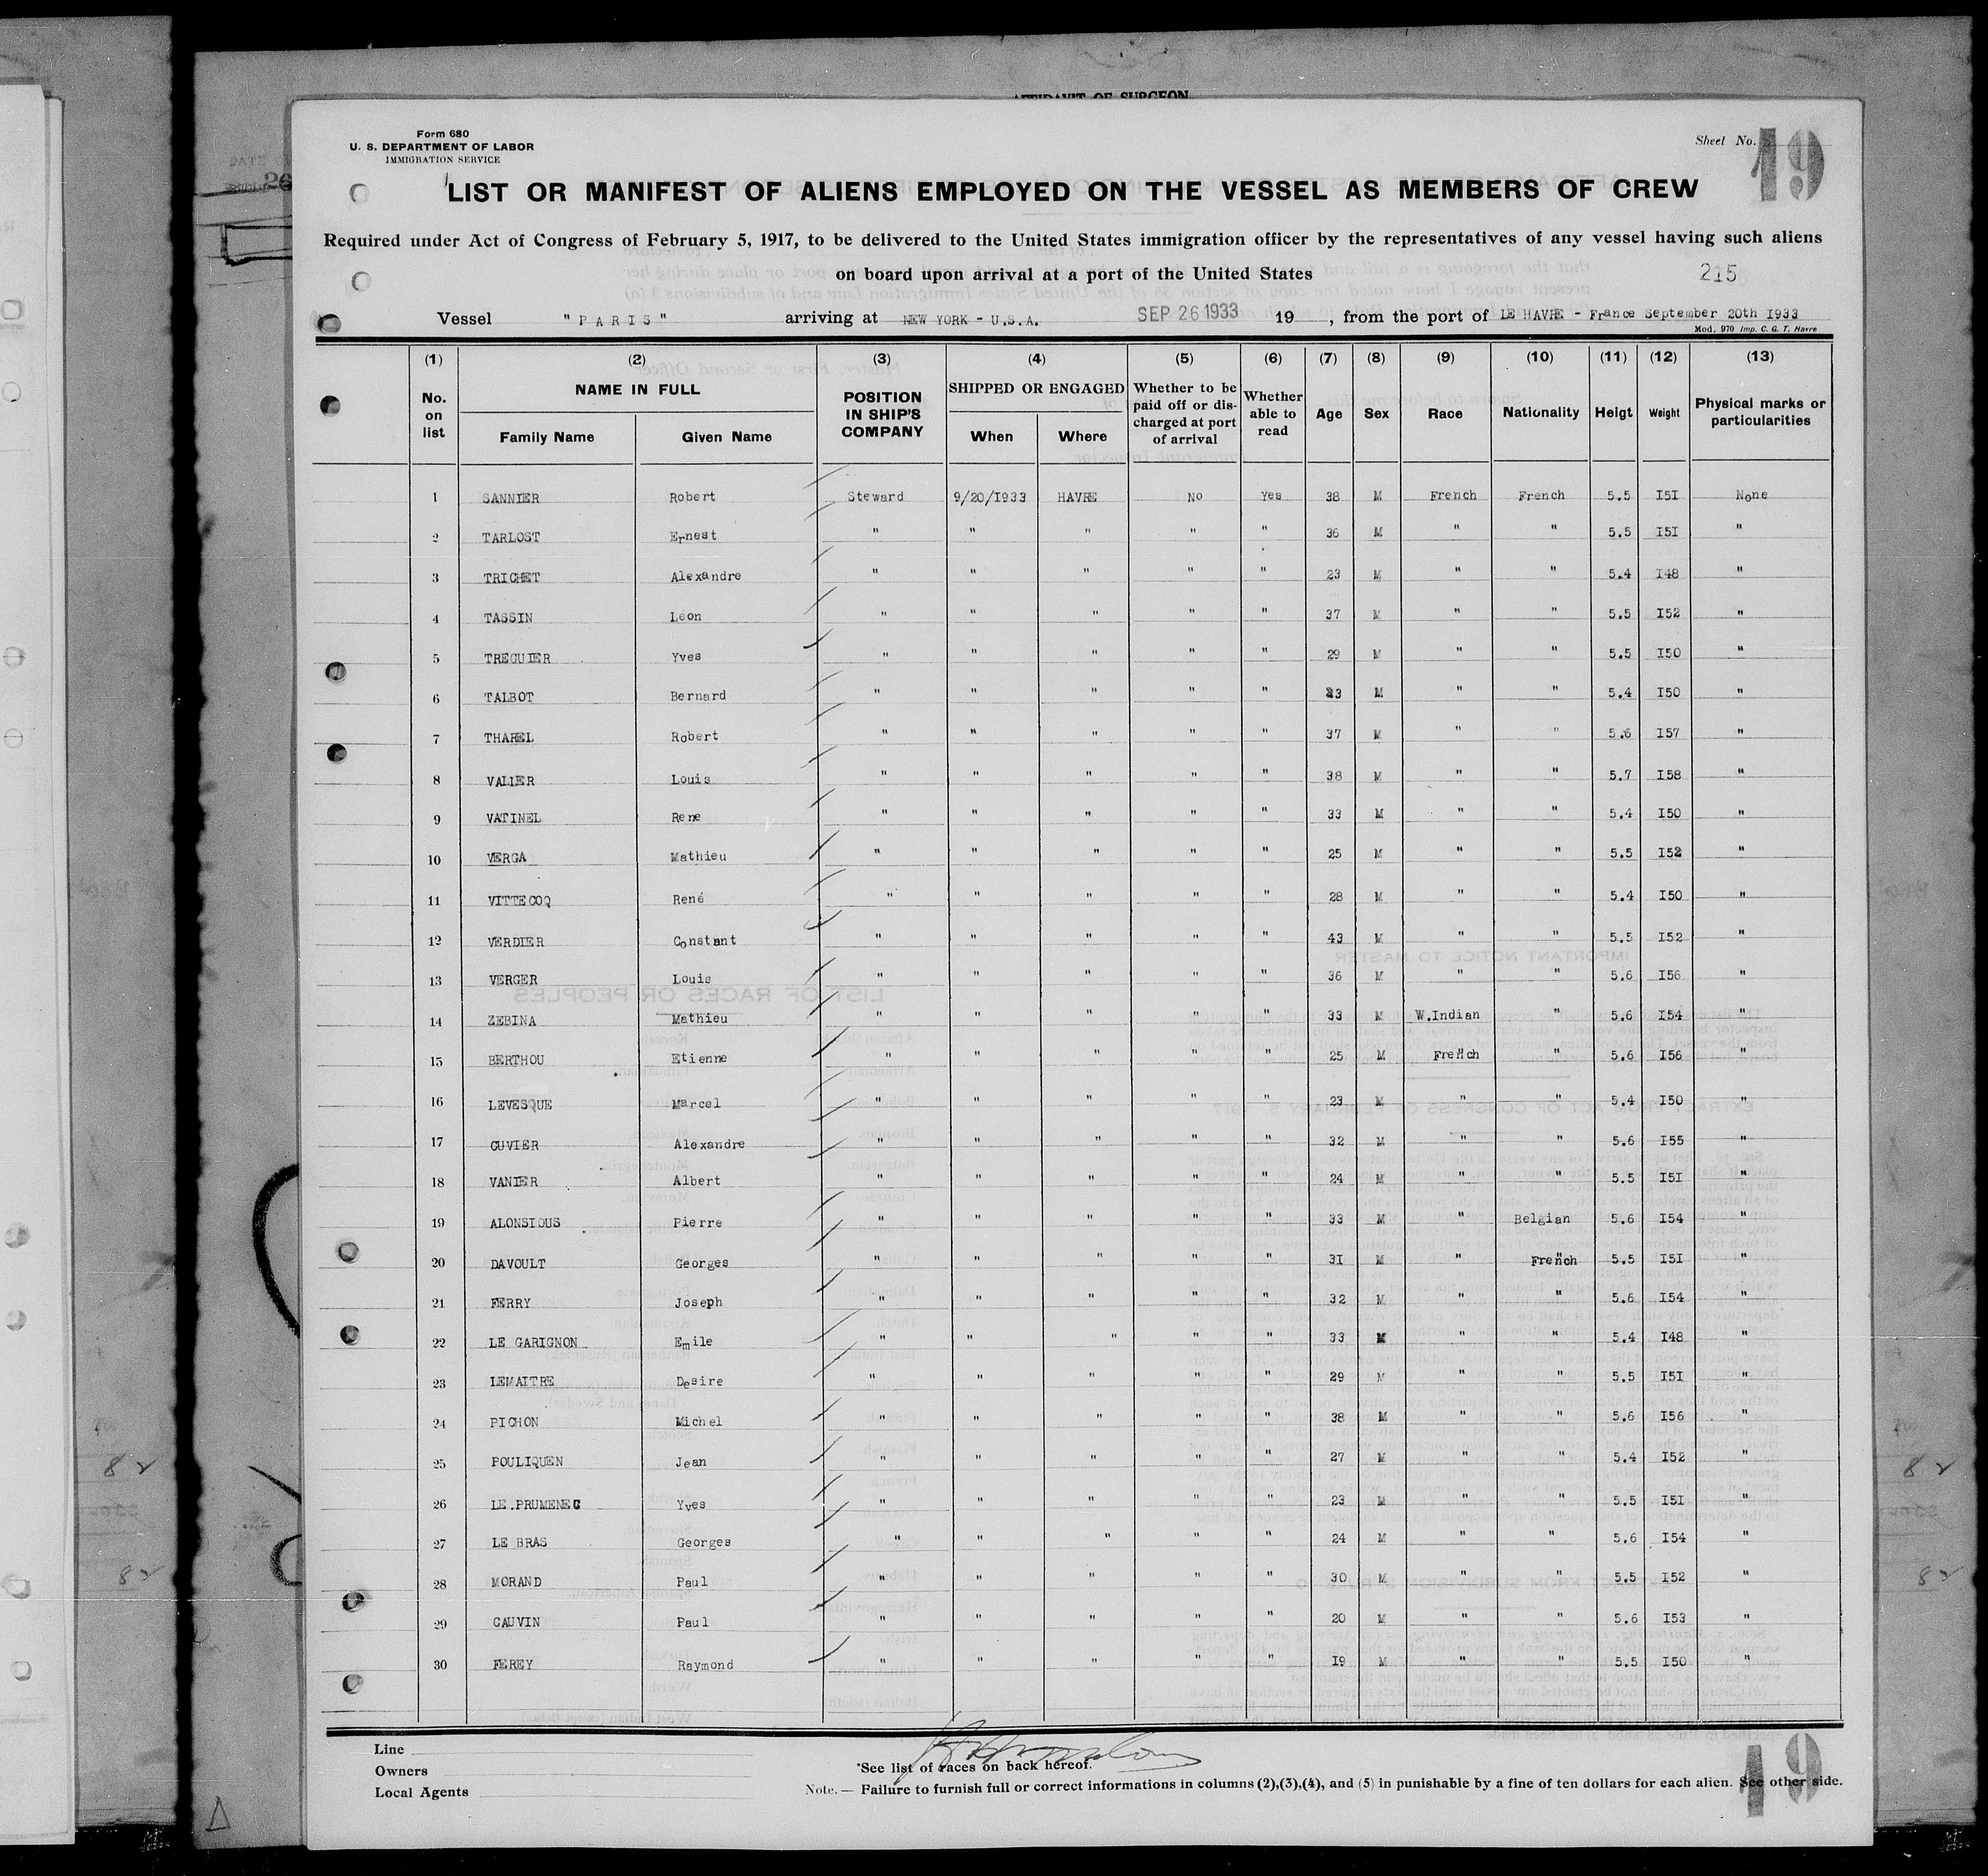 AFFIDAVIT OF SURGEON
Form 680
U. S. DEPARTMENT OF LABOR
IMMIGRATION SERVICE
Sheet No. 19
LIST OR MANIFEST OF ALIENS EMPLOYED ON THE VESSEL AS MEMBERS OF CREW
Required under Act of Congress of February 5, 1917, to be delivered to the United States immigration officer by the representatives of any vessel having such aliens
on board upon arrival at a port of the United States
215
Vessel "PARIS" arriving at NEW YORK - U.S.A. SEP 26 1933 19 , from the port of LE HAVRE - France September 20th I933
Mod. 970 Imp. C. G. T. Havre
(1) (2) (3) (4) (5) (6) (7) (8) (9) (10) (11) (12) (13)
No. on list NAME IN FULL Family Name Given Name POSITION IN SHIP'S COMPANY SHIPPED OR ENGAGED When Where Whether to be paid off or discharged at port of arrival Whether able to read Age Sex Race Nationality Heigt Weight Physical marks or particularities
1 SANNIER Robert Steward 9/20/I933 HAVRE No Yes 38 M French French 5.5 I5I None
2 TARLOST Ernest " " " " " 36 M " " 5.5 I5I "
3 TRICHET Alexandre " " " " " 23 M " " 5.4 I48 "
4 TASSIN Léon " " " " " 37 M " " 5.5 I52 "
5 TREGUIER Yves " " " " " 29 M " " 5.5 I50 "
6 TALBOT Bernard " " " " " M " " 5.4 I50 "
7 THAREL Robert " " " " " 37 M " " 5.6 I57 "
8 VALLER Louis " " " " " 38 M " " 5.7 I58 "
9 VATINEL Rene " " " " " 33 M " " 5.4 I50 "
10 VERGA Mathieu " " " " " 25 M " " 5.5 I52 "
11 VITTECOQ René " " " " " 28 M " " 5.4 I50 "
12 VERDIER Constant " " " " " 43 M " " 5.5 I52 "
13 VERGER Louis " " " " " 36 M " " 5.6 I56 "
14 ZEBINA Mathieu " " " " " 33 M W.Indian " 5.6 I54 "
15 BERTHOU Etienne " " " " " 25 M French " 5.6 I56 "
16 LEVESQUE Marcel " " " " " 23 M " " 5.4 I50 "
17 CUVIER Alexandre " " " " " 32 M " " 5.6 I55 "
18 VANIER Albert " " " " " 24 M " " 5.5 I5I "
19 ALONSIOUS Pierre " " " " " 33 M " Belgian 5.6 I54 "
20 DAVOULT Georges " " " " " 3I M " French 5.5 I5I "
21 FERRY Joseph " " " " " 32 M " " 5.6 I54 "
22 LE GARIGNON Emile " " " " " 33 M " " 5.4 I48 "
23 LEMAITRE Desire " " " " " 29 M " " 5.5 I5I "
24 PICHON Michel " " " " " 38 M " " 5.6 I56 "
25 POULIQUEN Jean " " " " " 27 M " " 5.4 I52 "
26 LE.PRUMENEC Yves " " " " " 23 M " " 5.5 I5I "
27 LE BRAS Georges " " " " " 24 M " " 5.6 I54 "
28 MORAND Paul " " " " " 30 M " " 5.5 I52 "
29 GAUVIN Paul " " " " " 20 M " " 5.6 I53 "
30 FEREY Raymond " " " " " I9 M " " 5.5 I50 "
Line
Owners
Local Agents
*See list of races on back hereof.
Note. — Failure to furnish full or correct informations in columns (2),(3),(4), and (5) in punishable by a fine of ten dollars for each alien. See other side.
19